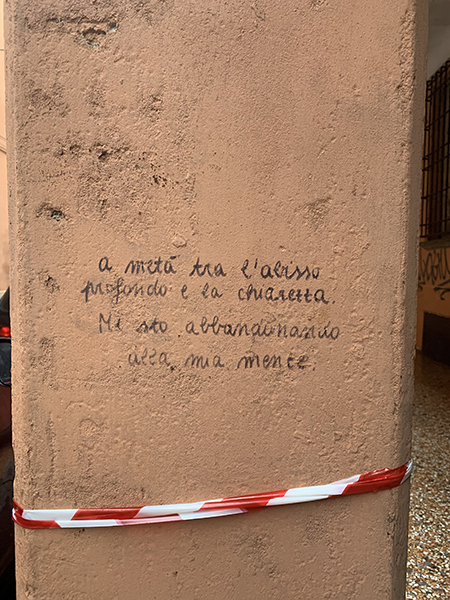 a metà tra l'abisso
profondo e la chiarezza.
Mi sto abbandonando
alla mia mente.